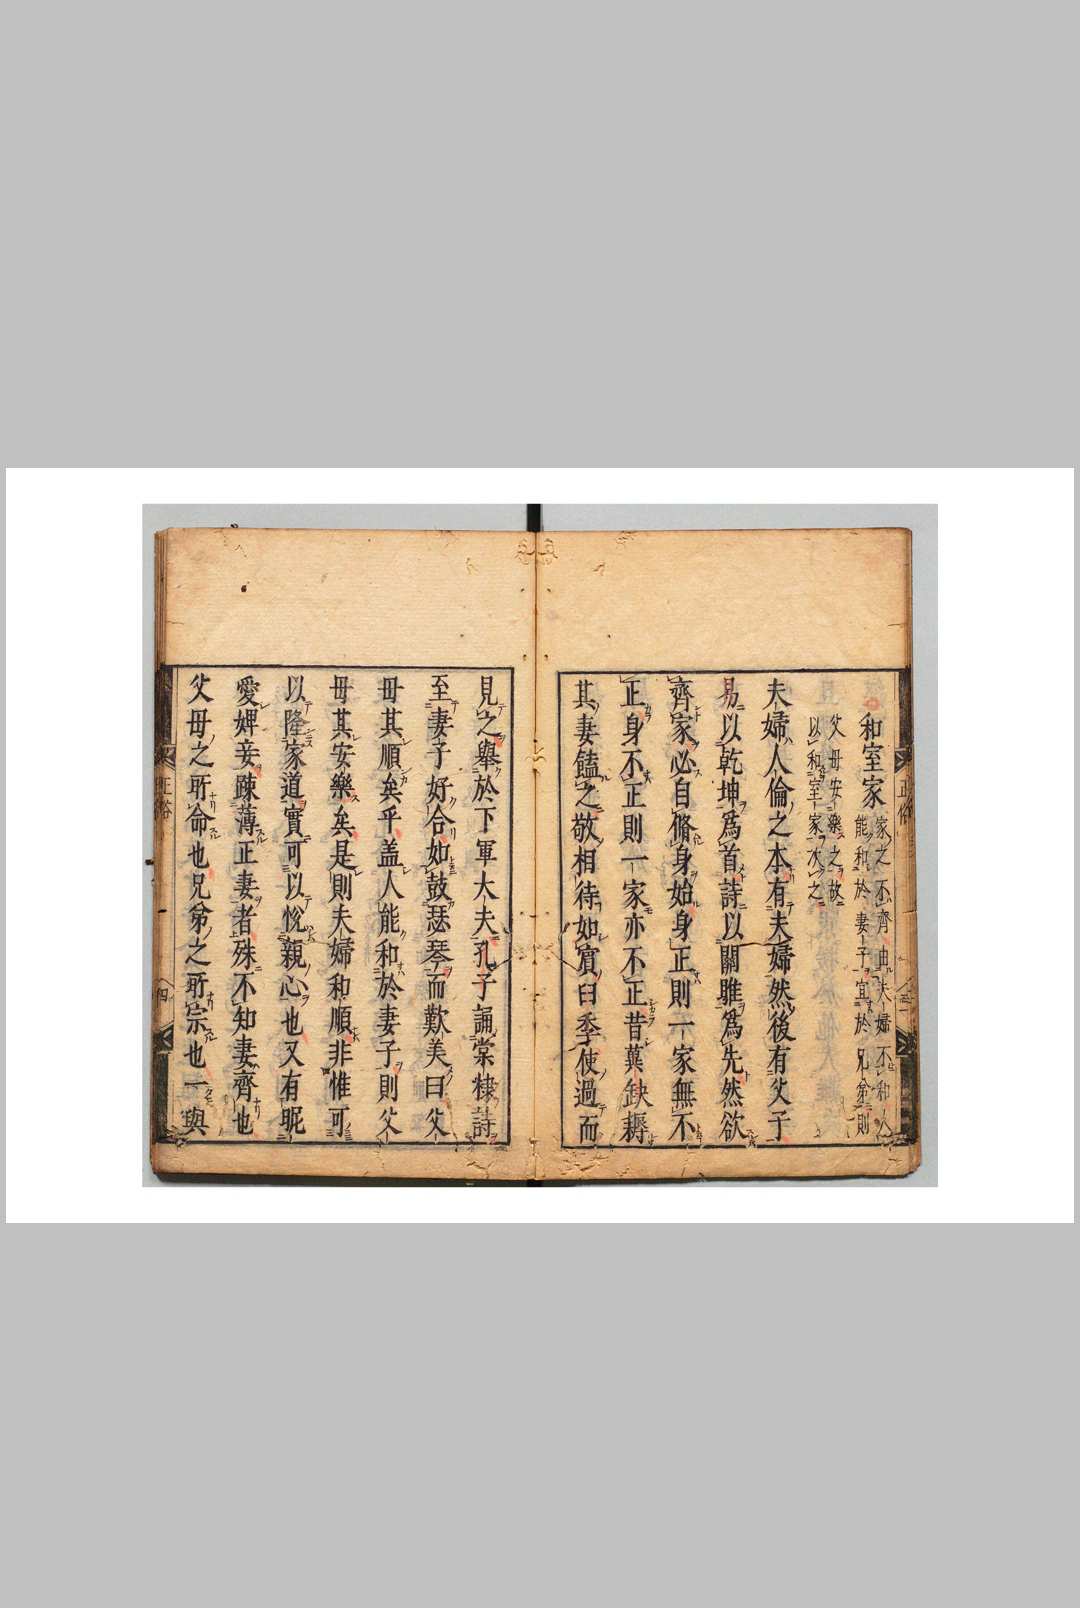 和室家
家之不齊由夫婦不和人
能和於妻子宜於兄弟則
父母安樂之故
以和室家次之
夫婦人倫之本有夫婦然後有父子
易以乾坤爲首詩以關雎爲先然欲
齊家必自脩身始身正則一家無不
正身不正則一家亦不正昔冀缺耨
其妻饁之敬相待如賓臼季使過而
見之舉於下軍大夫孔子誦棠棣詩
至妻子好合如鼓瑟琴而歎美曰父
母其順矣乎盖人能和於妻子則父
母其安樂矣是則夫婦和順非惟可
以隆家道實可以悅親心也又有昵
愛婢妾踈薄正妻者殊不知妻齊也
父母之所命也兄弟之所宗也一與
正俗
四